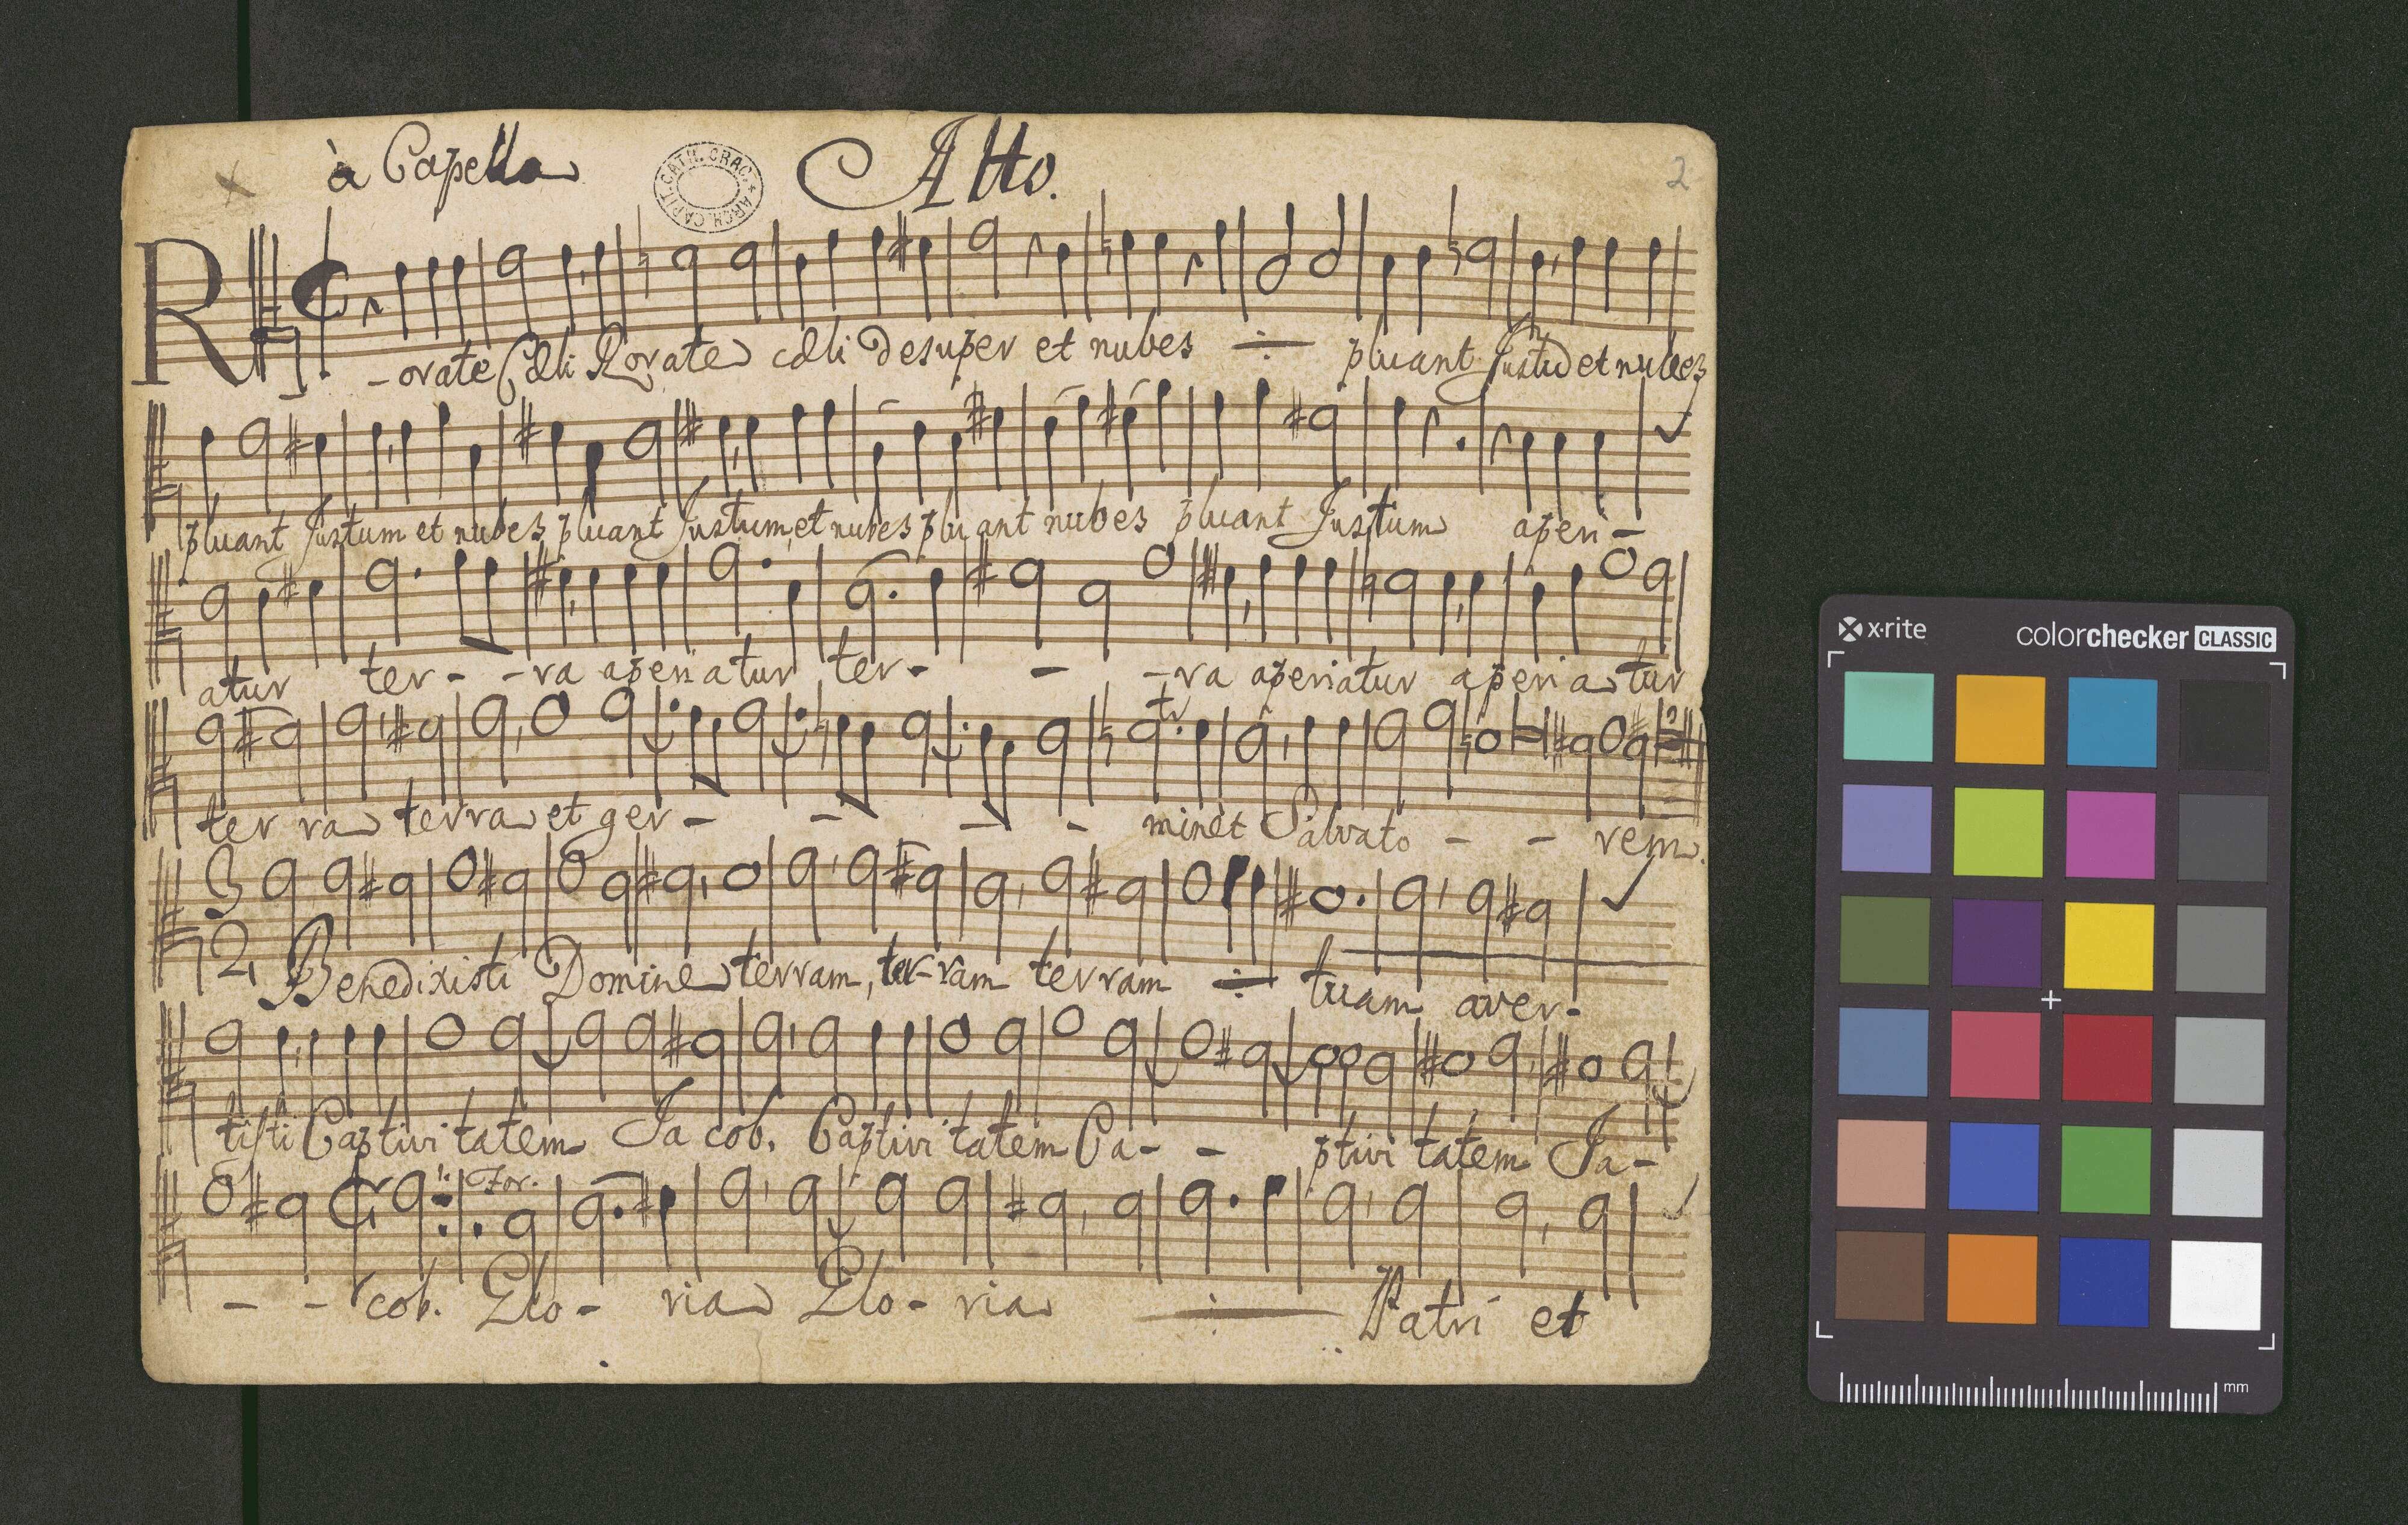 à Capella Alto. 2
ARCH. CAPIT. CATH. CRAC.
R -orate Cæli Rorate cæli Desuper et nubes ÷ pluant Justū et nubes
pluant Justum et nubes pluant Justum, et nubes plu ant nubes pluant Justum aperi-
atur ter- -ra aperiatur ter- - -ra aperiatur aperiatur
ter ra terra et ger- - - - minet Salvato - - rem.
2, Benedixisti Domine terram, ter-ram terram ÷ tuam aver-
tisti Captivitatem Jacob. Captivitatem Ca- - ptivi tatem Ja-
For.
- - cob. Glo- ria Glo- ria ÷ Patri et
x·rite colorchecker CLASSIC
mm